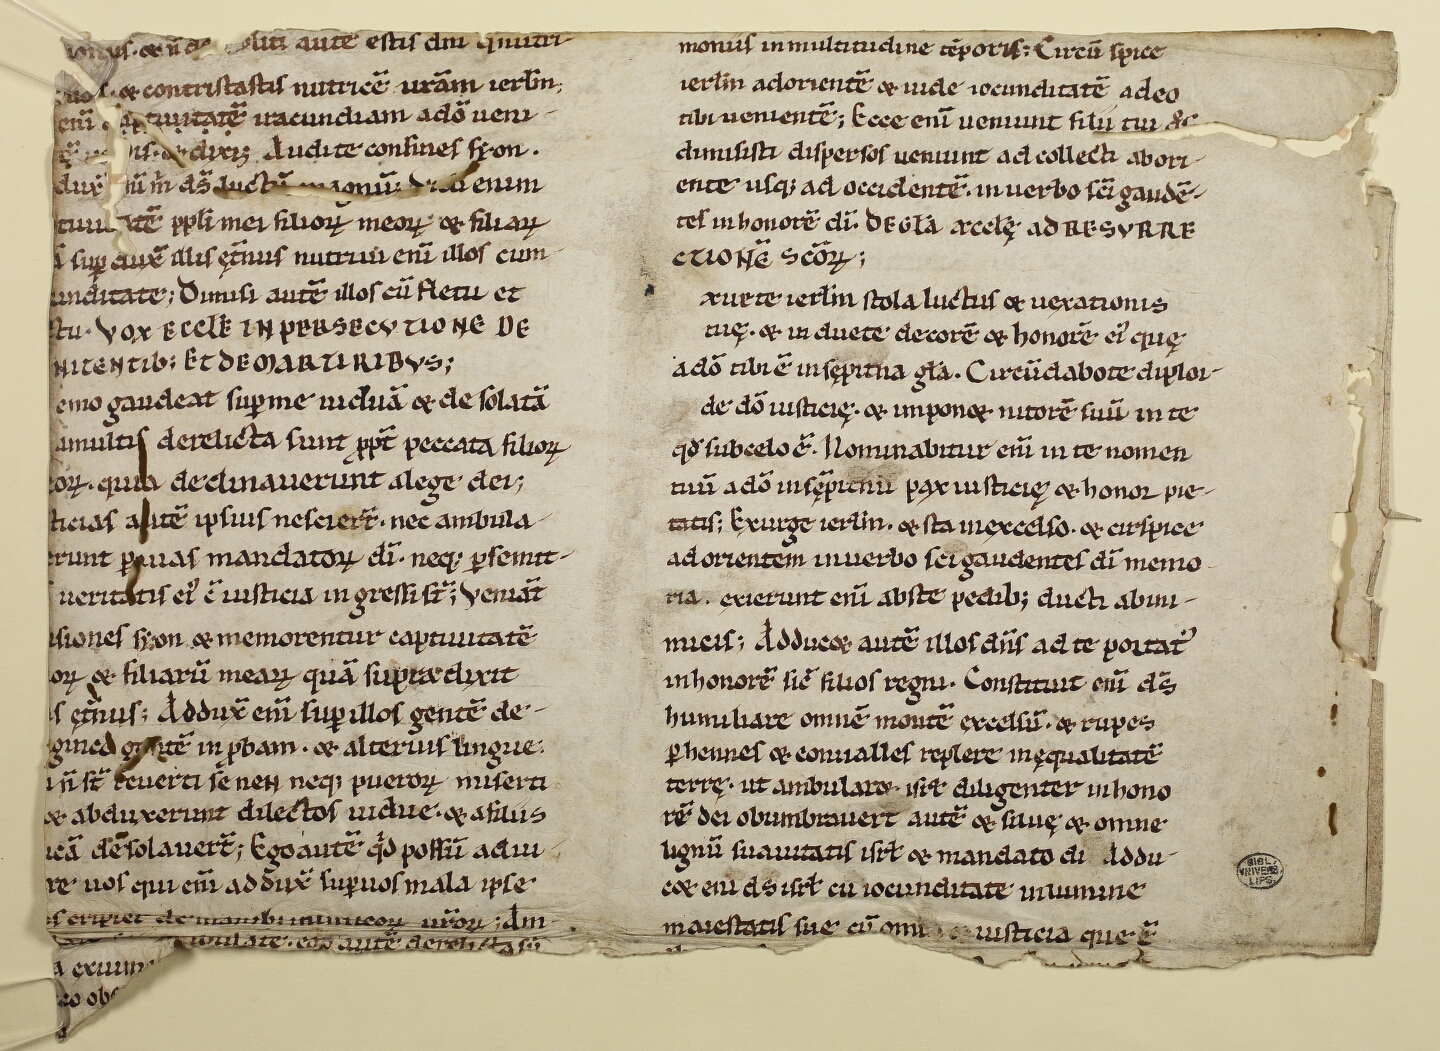 estis dm̄ q nutri-
⁊ contristastis nutricē urām ierlm̄;
enī captiuitatē iracundiam adō ueni-
dixit; Audite confines syon.
dux̄ m̄ m̄ ds̄ luctū magnū; enim
tiuitatē ppli mei filioꝝ meoꝝ & filiaꝝ
sup duxē illis ęt̄nus nutriui enī illos cum
cunditate; Dimisi autē illos cū fletu et
tu. VOX ECCLE IN PERSECUTIONE DE
NITENTIB; ET DE MARTIRIBVS;
emo gaudeat sup me uiduā & desolatā
amultis derelicta sunt ppt̄ peccata filioꝝ
eoꝝ. quia declinauerunt alege dei;
ticias autē ipsius nescier̄t. nec ambula-
erunt p̄ uias mandatoꝝ dī. neq; p̄ semit-
ueritatis ei' c̄ iusticia ingressi st̄; Veniāt
siones syon & memorentur captiuitatē
oꝝ & filiarū meaꝝ quā supra dixit
s ęt̄nus; Addux̄ enī sup illos gentē de-
ginq gentē inp̄bam. & alterius lingue.
n̄ st̄ reuerti senen neq; pueroꝝ miserti
& abduxerunt dilectos uidue. & afiliis
icā desolauert̄; Ego autē qd possū adiu-
re uos qui enī addux̄ sup uos mala ipse
s eripiet de manib; inimicoꝝ urōꝝ; Am-
bulate. ego autē derelicta sū
a exui
co obs
moniis inmultitudine tēporis; Circū spice
ierlm̄ ad orientē & uide iocunditatē adeo
tibi uenientē; Ecce enī ueniunt filii tui &c
dimisisti dispersos ueniunt ad collecti abori-
ente usq; ad occidentē. inuerbo sc̄i gaudē-
tes inhonorē dī. DE GLA ęcclę AD RESVRRE
CTIONĒ SCŌꝝ;
xurte ierlm̄ stola luctus & uexationis
tuę. & induete decorē & honorē ei' quę
adō tibi ē insēpitna gla. Circūdabote diploi-
de dō iusticię. & imponet mitorē suū inte
qd subcelo ē. Nominabitur enī inte nomen
tuū adō insēpitnū pax iusticię & honor pie-
tatis; Exurge ierlm̄. & sta inexcelso. & cirspice
ad orientem inuerbo sc̄i gaudentes dī memo
ria. exierunt enī abste pedib; ducti abini-
micis; Adducet autē illos dn̄s adte portat'
inhonorē sic̄ filios regni. Constituit enī ds̄
humiliare omnē montē excelsū. & rupes
p̄hennes & conualles replere inęqualitatē
terrę. ut ambularet isrl̄ diligenter inhono
rē dei obumbrauert autē & siluę & omne
lignū suauitatis isrl̄ & mandato di Addu-
cet enī ds isrl̄ cū iocunditate inlumine
maiestatis sue cū omi iusticia que ē
BIBL.
VNIVERS
LIPS.